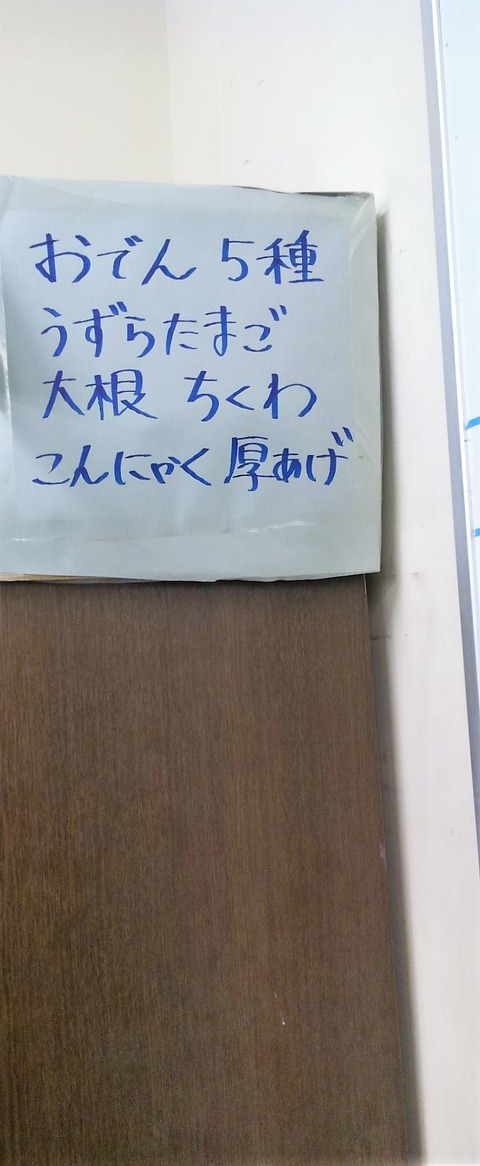 おでん 5種
うずらたまご
大根 ちくわ
こんにゃく 厚あげ